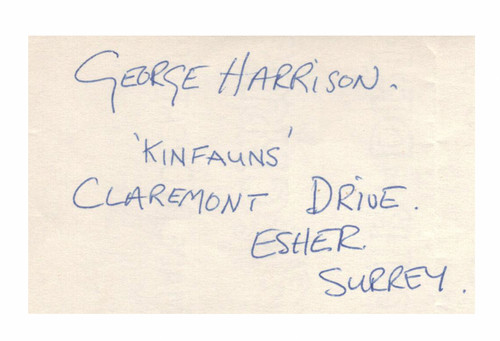 GEORGE HARRISON.
'KINFAUNS'
CLAREMONT DRIVE.
ESHER
SURREY.